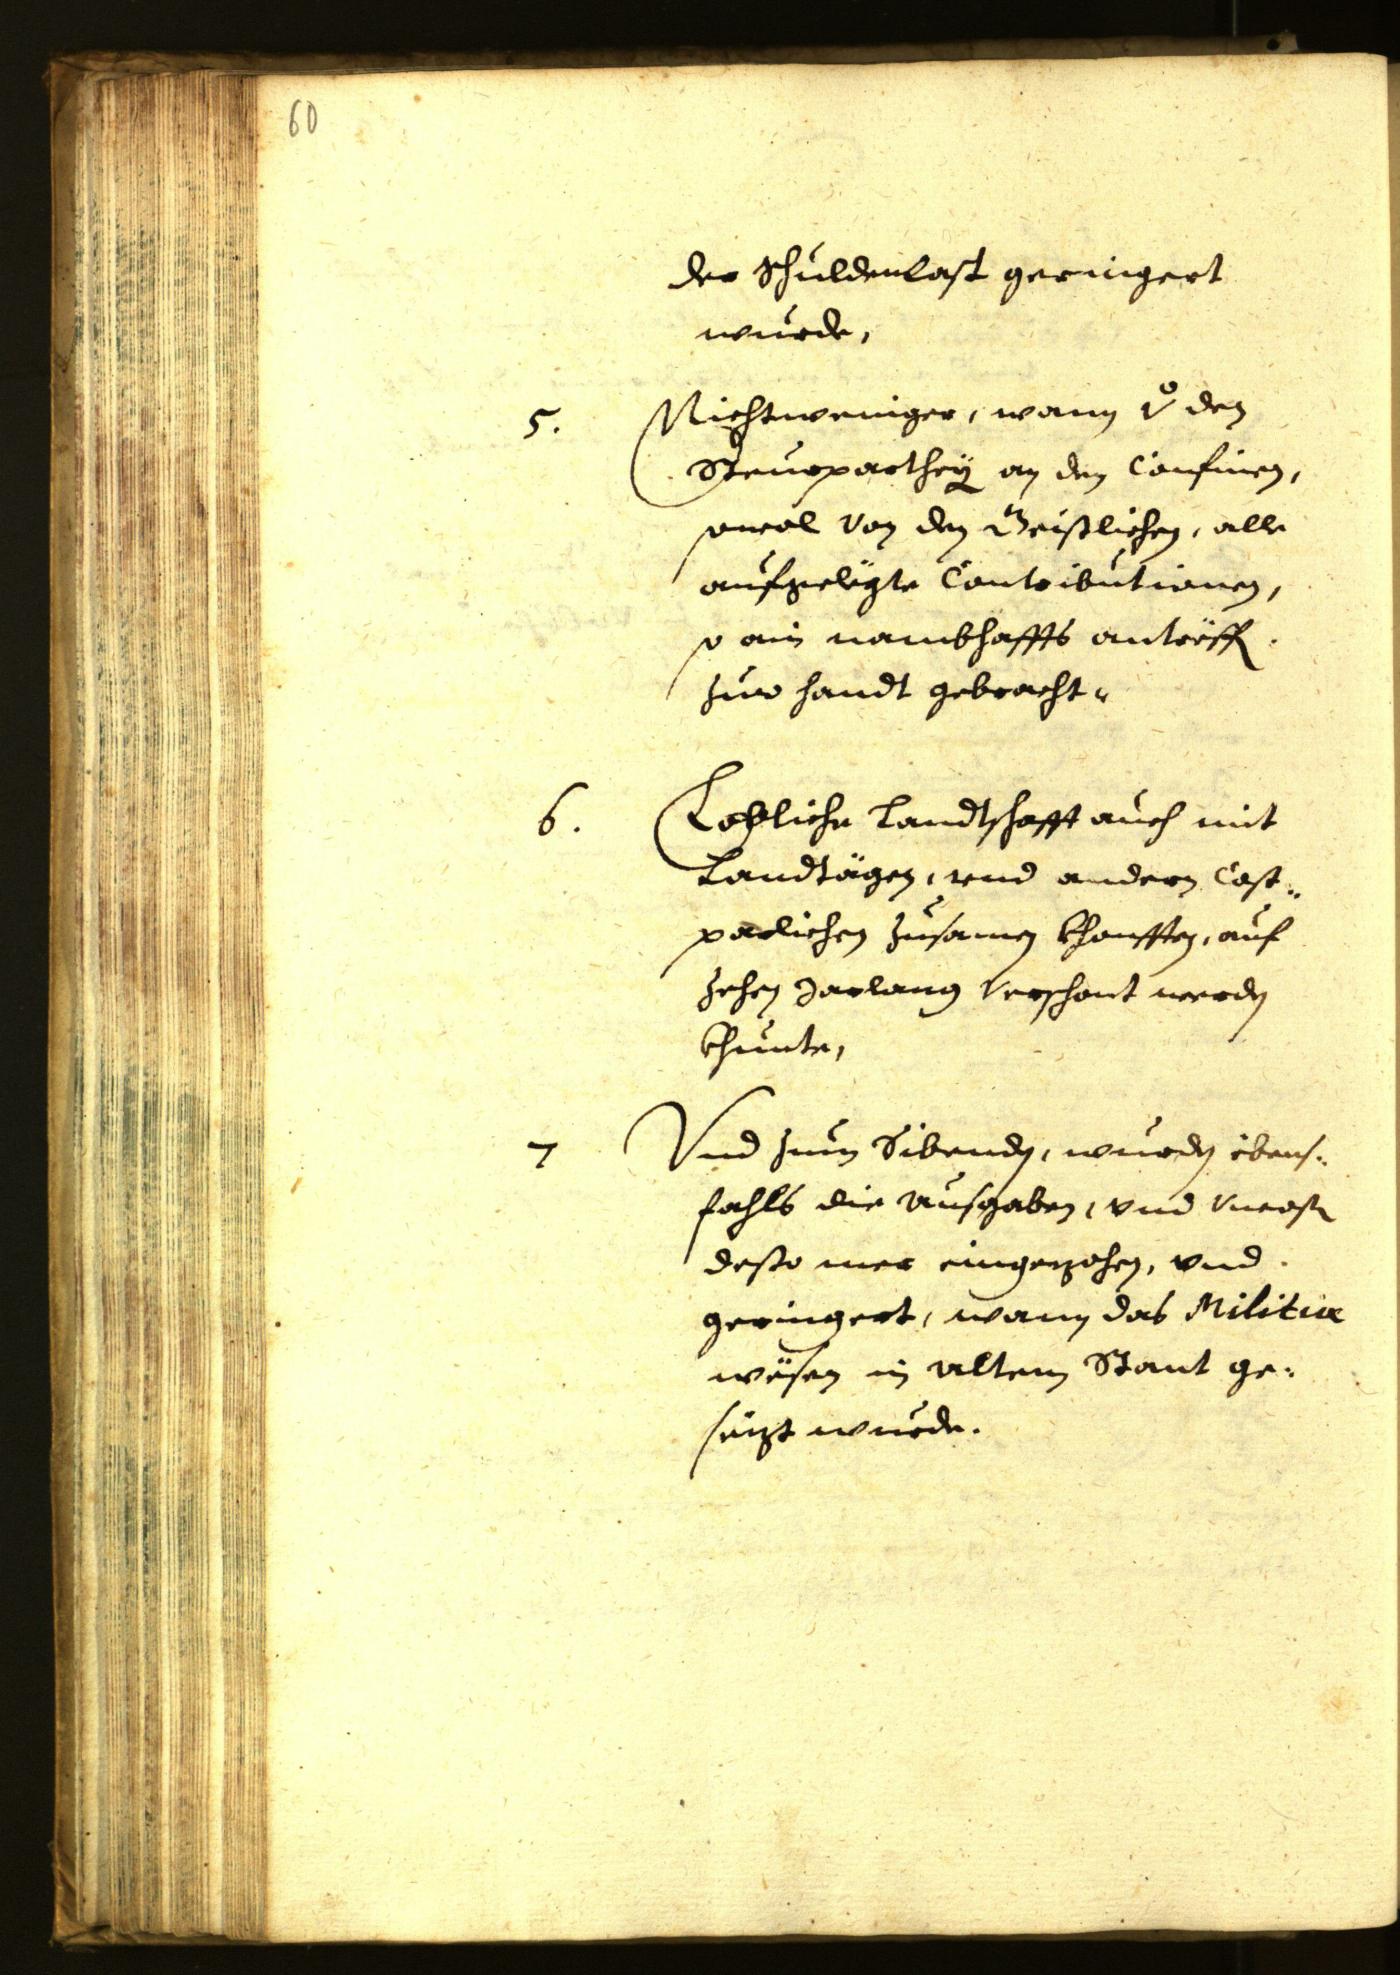 60
der Schuldenlast geringert
wurde,
5. Nichtweniger, wann den
Steurparthey an den Confinen,
sowol von den Geistlichen, alle
aufgelegte Contributionen,
so ain nambhaffts antreff
zur handt gebracht.
6. Lobliche Landtschafft auch mit
Landtägen, vnd andern Cost-
parlichen Zusamen khonfften, auf
Zehen Jarlang verschont werden
khunte,
7 Vnd zum Sibenden, wurden ebens-
fahls die Ausgaben, vnd
desto mer eingezohen, vnd
geringert, wann das Militia
wësen in altem Stant ge-
sezt wurde.